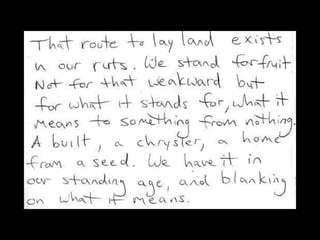 That route to lay land exists
in our ruts. We stand for fruit
Not for that weakward but
for what it stands for, what it
means to something from nothing.
A built, a chryster, a home
from a seed. We have it in
our standing age, and blanking
on what it means.